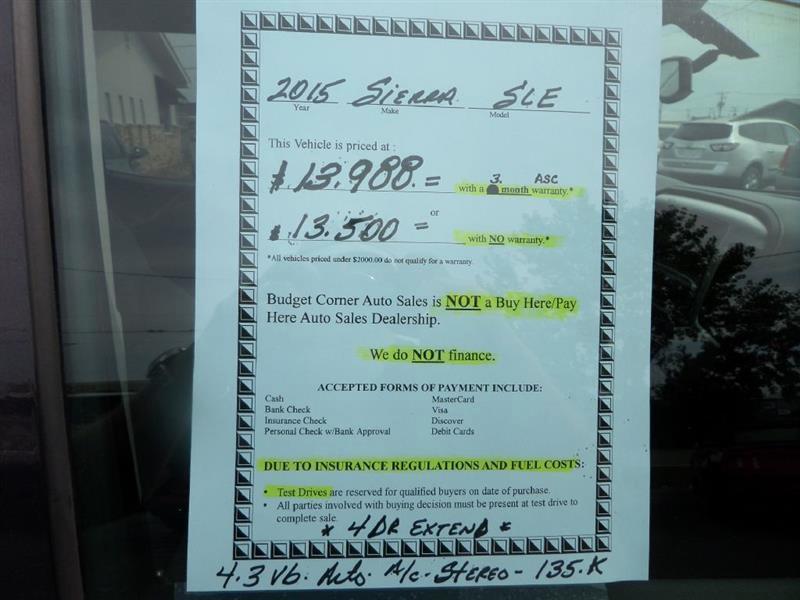 2015 Sierra SLE
Year Make Model
This Vehicle is priced at :
$ 13,988. = with a 3 month warranty.* ASC
or
$ 13,500 = with NO warranty.*
*All vehicles priced under $2000.00 do not qualify for a warranty.
Budget Corner Auto Sales is NOT a Buy Here/Pay
Here Auto Sales Dealership.
We do NOT finance.
ACCEPTED FORMS OF PAYMENT INCLUDE:
Cash MasterCard
Bank Check Visa
Insurance Check Discover
Personal Check w/Bank Approval Debit Cards
DUE TO INSURANCE REGULATIONS AND FUEL COSTS:
• Test Drives are reserved for qualified buyers on date of purchase.
• All parties involved with buying decision must be present at test drive to
complete sale.
* 4 DR EXTEND *
4.3 V6. Auto. A/c - STEREO - 135.K